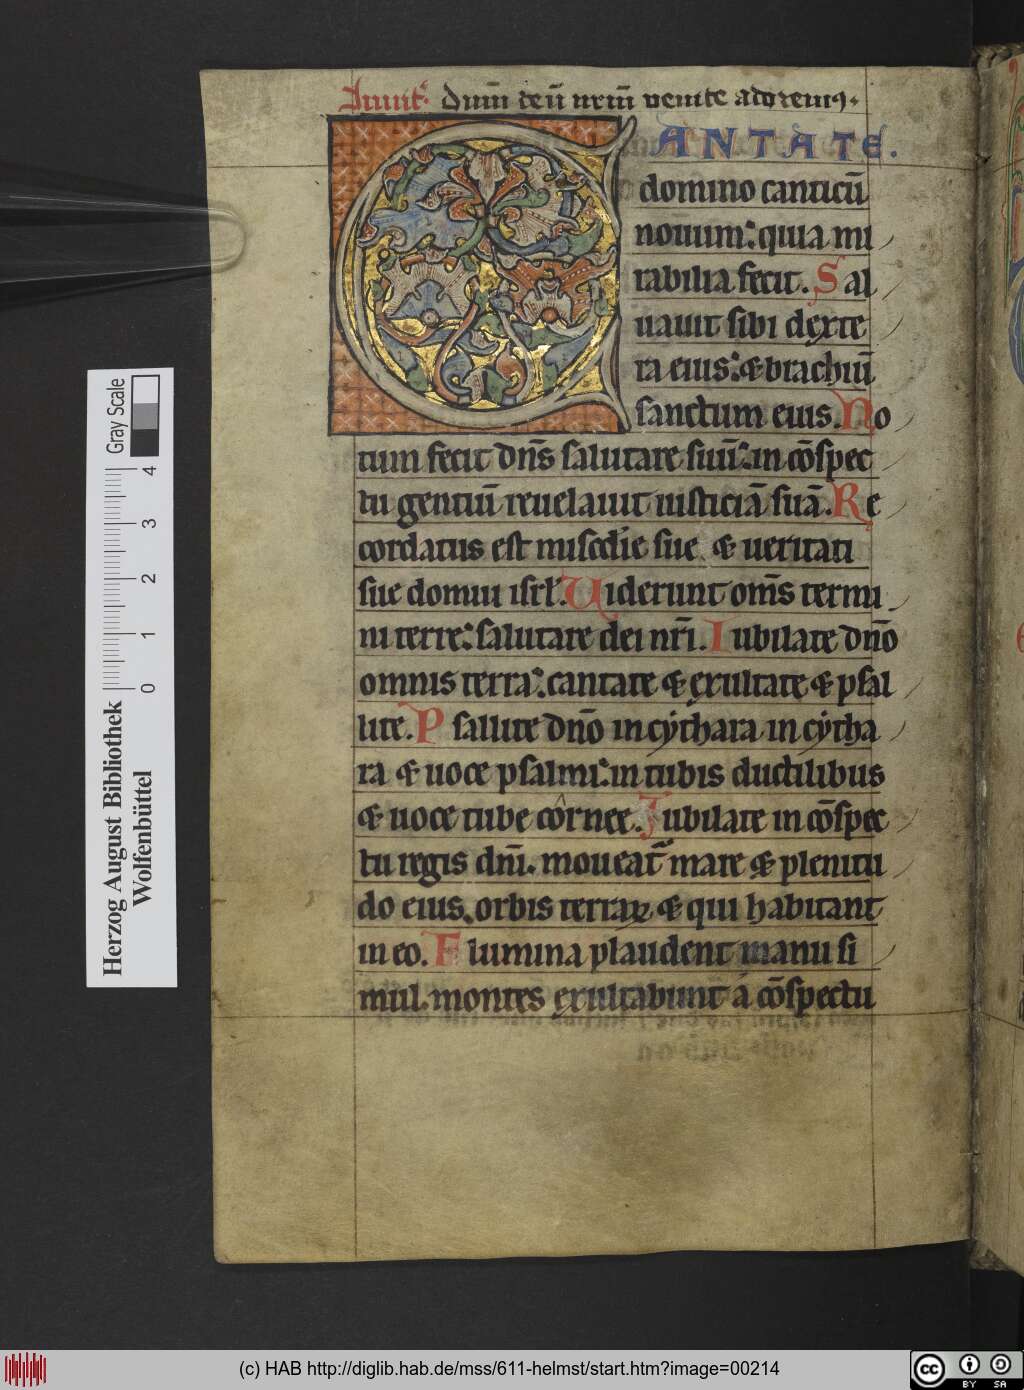 Inuit̄. dnm̄ deū nrm̄ venite adoremꝰ.
CANTATE.
domino canticū
nouum: quia mi
rabilia fecit. Sal
uauit sibi dexte
ra eius: & brachiū
sanctum eius. No
tum fecit dn̄s salutare suū: in cōspec
tu gentiū reuelauit iusticiā suā. Re
cordatus est miscd̄ie sue & ueritati
sue domui isrl̄. Uiderunt om̄s termi
ni terre: salutare dei nr̄i. Iubilate dn̄o
omnis terra: cantate & exultate & psal
lite. Psallite dn̄o in cythara in cytha
ra & uoce psalmi: in tubis ductilibus
& uoce tube cornee. Iubilate in cōspec
tu regis dn̄i. moueat᷑ mare & plenitu
do eius. orbis terraꝝ & qui habitant
in eo. Flumina plaudent manu si
mul. montes exultabunt a cōspectu
Herzog August Bibliothek
Wolfenbüttel
0 1 2 3 4
Gray Scale
(c) HAB http://diglib.hab.de/mss/611-helmst/start.htm?image=00214
cc BY SA